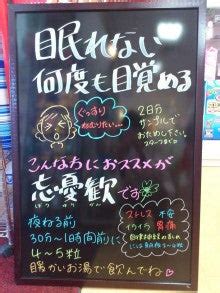 眠れない
何度も目覚める
ぐっすり
ねむりたい…
2日分
サンプルで
おためし下さい。
こんな方におススメが
忘憂歓です
ぼうゆうかん
ストレス 不安
イライラ 胃痛
夜ねる前
30分～1時間前に
4～5粒
暖かいお湯で飲んでね♡